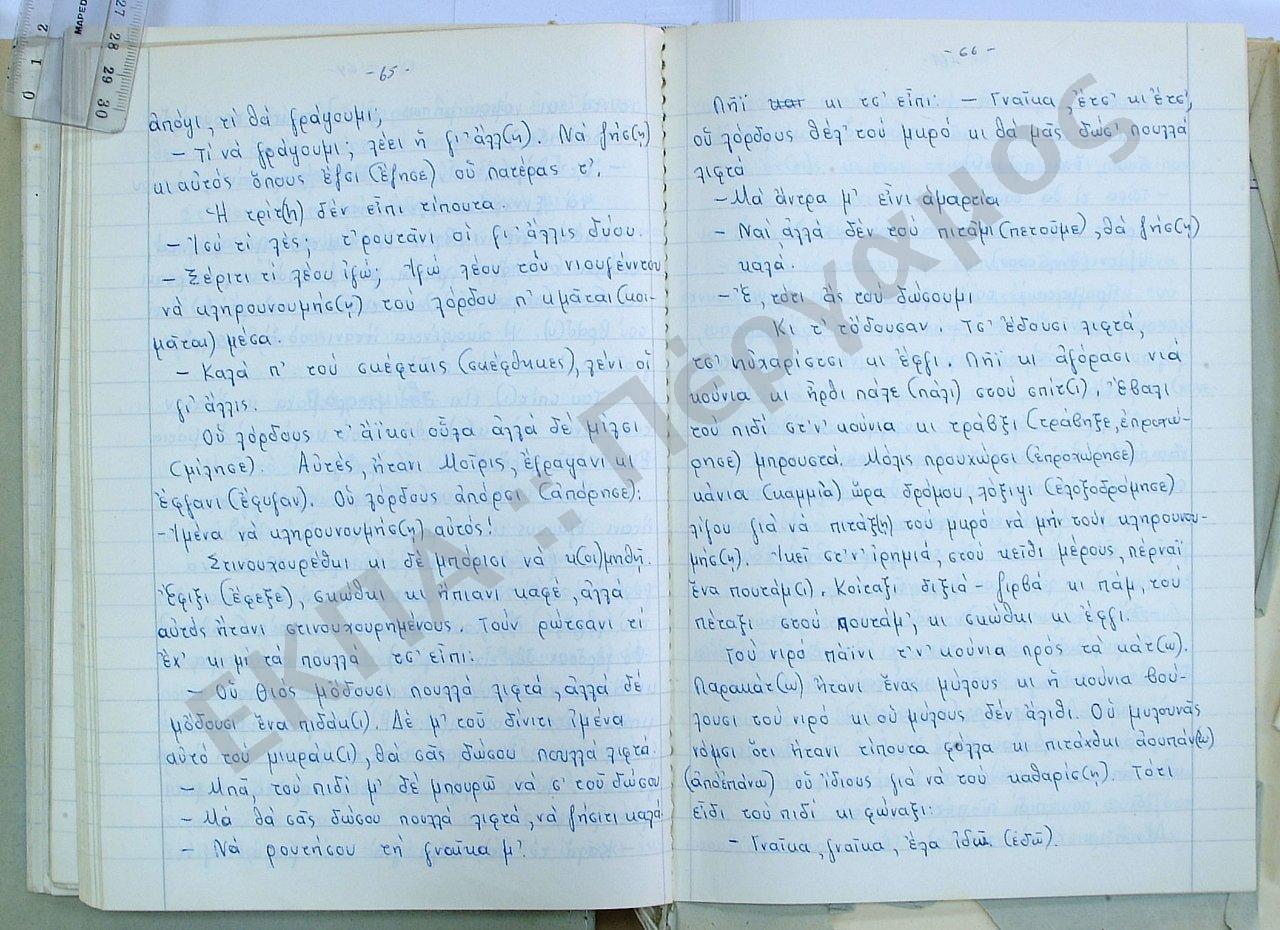 -65-
ἀπόψι, τί θά γράψουμι;
- Τί νά γράψουμι; λέει ἡ γι' ἄλλ(η). Νά ζήσ(η)
κι αὐτός ὅπους ἔζσι (ἔζησε) οὑ πατέρας τ'.
Ἡ τρίτ(η) δέν εἶπι τίπουτα.
- Ἰσύ τί λές; τ'ρουτᾶνι οἱ γι' ἄλλις δύου.
- Ξέριτι τί λέου ἰγώ; Ἰγώ λέου τοὑ νιουγέννητου
νά κληρουνουμήσ(η) τοὑ λόρδου π' κμᾶται (κοι-
μᾶται) μέσα.
- Καλά π' τού σκέφτκις (σκέφθηκες), λένι οἱ
γι' ἄλλις.
Οὑ λόρδους τ' ἄϊκσι οὗλα ἀλλά δέ μίλσι
(μίλησε). Αὐτές, ἤτανι Μοῖρις, ἔγραψανι κι
ἔφγανι (ἔφυγαν). Οὑ λόρδους ἀπόρσι (ἀπόρησε):
- Ἰμένα νά κληρουνουμήσ(η) αὐτός!
Στινουχουρέθκι κι δέ μπόρισι νά κ(οι)μηθῇ.
Ἔφιξι (ἔφεξε), σκώθκι κι ἤπιανι καφέ, ἀλλά
αὐτός ἤτανι στινουχουρημένους. Τούν ρώτσανι τί
ἔχ' κι μί τά πουλλά τσ' εἶπι:
- Οὑ Θιός μὄδουσι πουλλά λιφτά, ἀλλά δέ
μὄδουσι ἕνα πιδάκ(ι). Δέ μ' τοὑ δίνιτι ἰμένα
αὐτό τοὑ μικράκ(ι), θά σᾶς δώσου πουλλά λιφτά.
- Μπᾶ, τοὑ πιδί μ' δέ μπουρῶ νά σ' τοὑ δώσου
- Μά θά σᾶς δώσου πουλλά λιφτά, νά ζήσιτι καλά
- Νά ρουτήσου τή γναῖκα μ'.
-66-
Πῆϊ κι τσ' εἶπι: - Γναῖκα, ἔτσ' κι ἔτσ',
οὑ λόρδους θέλ' τοὑ μκρό κι θά μᾶς δώσ' πουλλά
λιφτά
- Μά ἄντρα μ' εἶνι ἁμαρτία
- Ναί ἀλλά δέν τοὑ πιτάμι (πετοῦμε), θά ζήσ(η)
καλά.
- Ἔ, τότι ἄς τοὑ δώσουμι
Κι τ' τὄδουσαν. Τσ' ἔδουσι λιφτά,
τσ' ηὐχαρίστσι κι ἔφγι. Πῆϊ κι ἀγόρασι νιά
κούνια κι ἦρθι πάλε (πάλι) στού σπίτ(ι). Ἔβαλι
τοὑ πιδί στ'ν' κούνια κι τράβξι (τράβηξε, ἐπροχώ-
ρησε) μπρουστά. Μόλις προυχώρσι (ἐπροχώρησε)
κάνια (καμμιά) ὥρα δρόμου, λόξιψι (ἐλοξοδρόμησε)
λίγου γιά νά πιτάξ(η) τοὑ μκρό νά μήν τούν κληρουνου-
μήσ(η). Ἰκεῖ στ'ν' ἰρημιά, στοὑ κεῖθι μέρους, πέρναϊ
ἕνα πουτάμ(ι). Κοίταξι διξιά - ζιρβά κι πάμ, τοὑ
πέταξι στοὑ πουτάμ', κι σκώθκι κι ἔφγι.
Τοὑ νιρό πάϊνι τ'ν' κούνια πρός τά κάτ(ω).
Παρακάτ(ω) ἤτανι ἕνας μύλους κι ἡ κούνια βού-
λουσι τοὑ νιρό κι οὑ μύλους δέν ἄλιθι. Οὑ μυλουνάς
νόμσι ὅτι ἤτανι τίπουτα φύλλα κι πιτάχθκι ἀουπάν(ω)
(ἀπό ἐπάνω) οὑ ἴδιους γιά νά τοὑ καθαρίσ(η). Τότι
εἶδι τοὑ πιδί κι φώναξι:
- Γναῖκα, γναῖκα, ἔλα ἰδῶ (ἐδῶ).
ΕΚΠΑ :: Πέργαμος